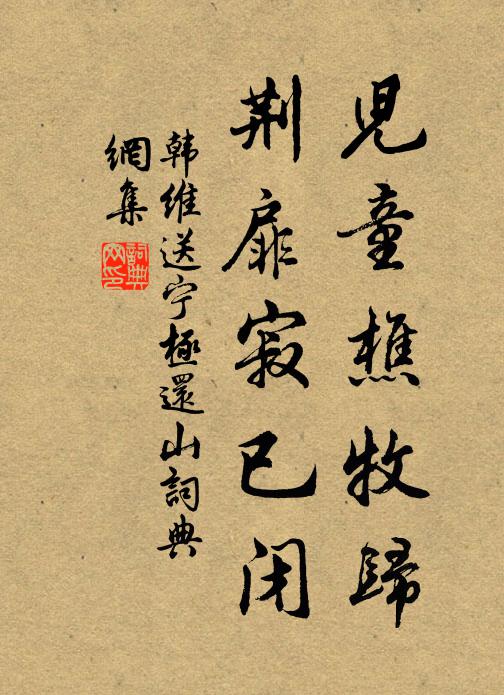 兒童樵牧歸
荆扉寂已闭
韩维送宁極還山詞典
網集
詞典
网印